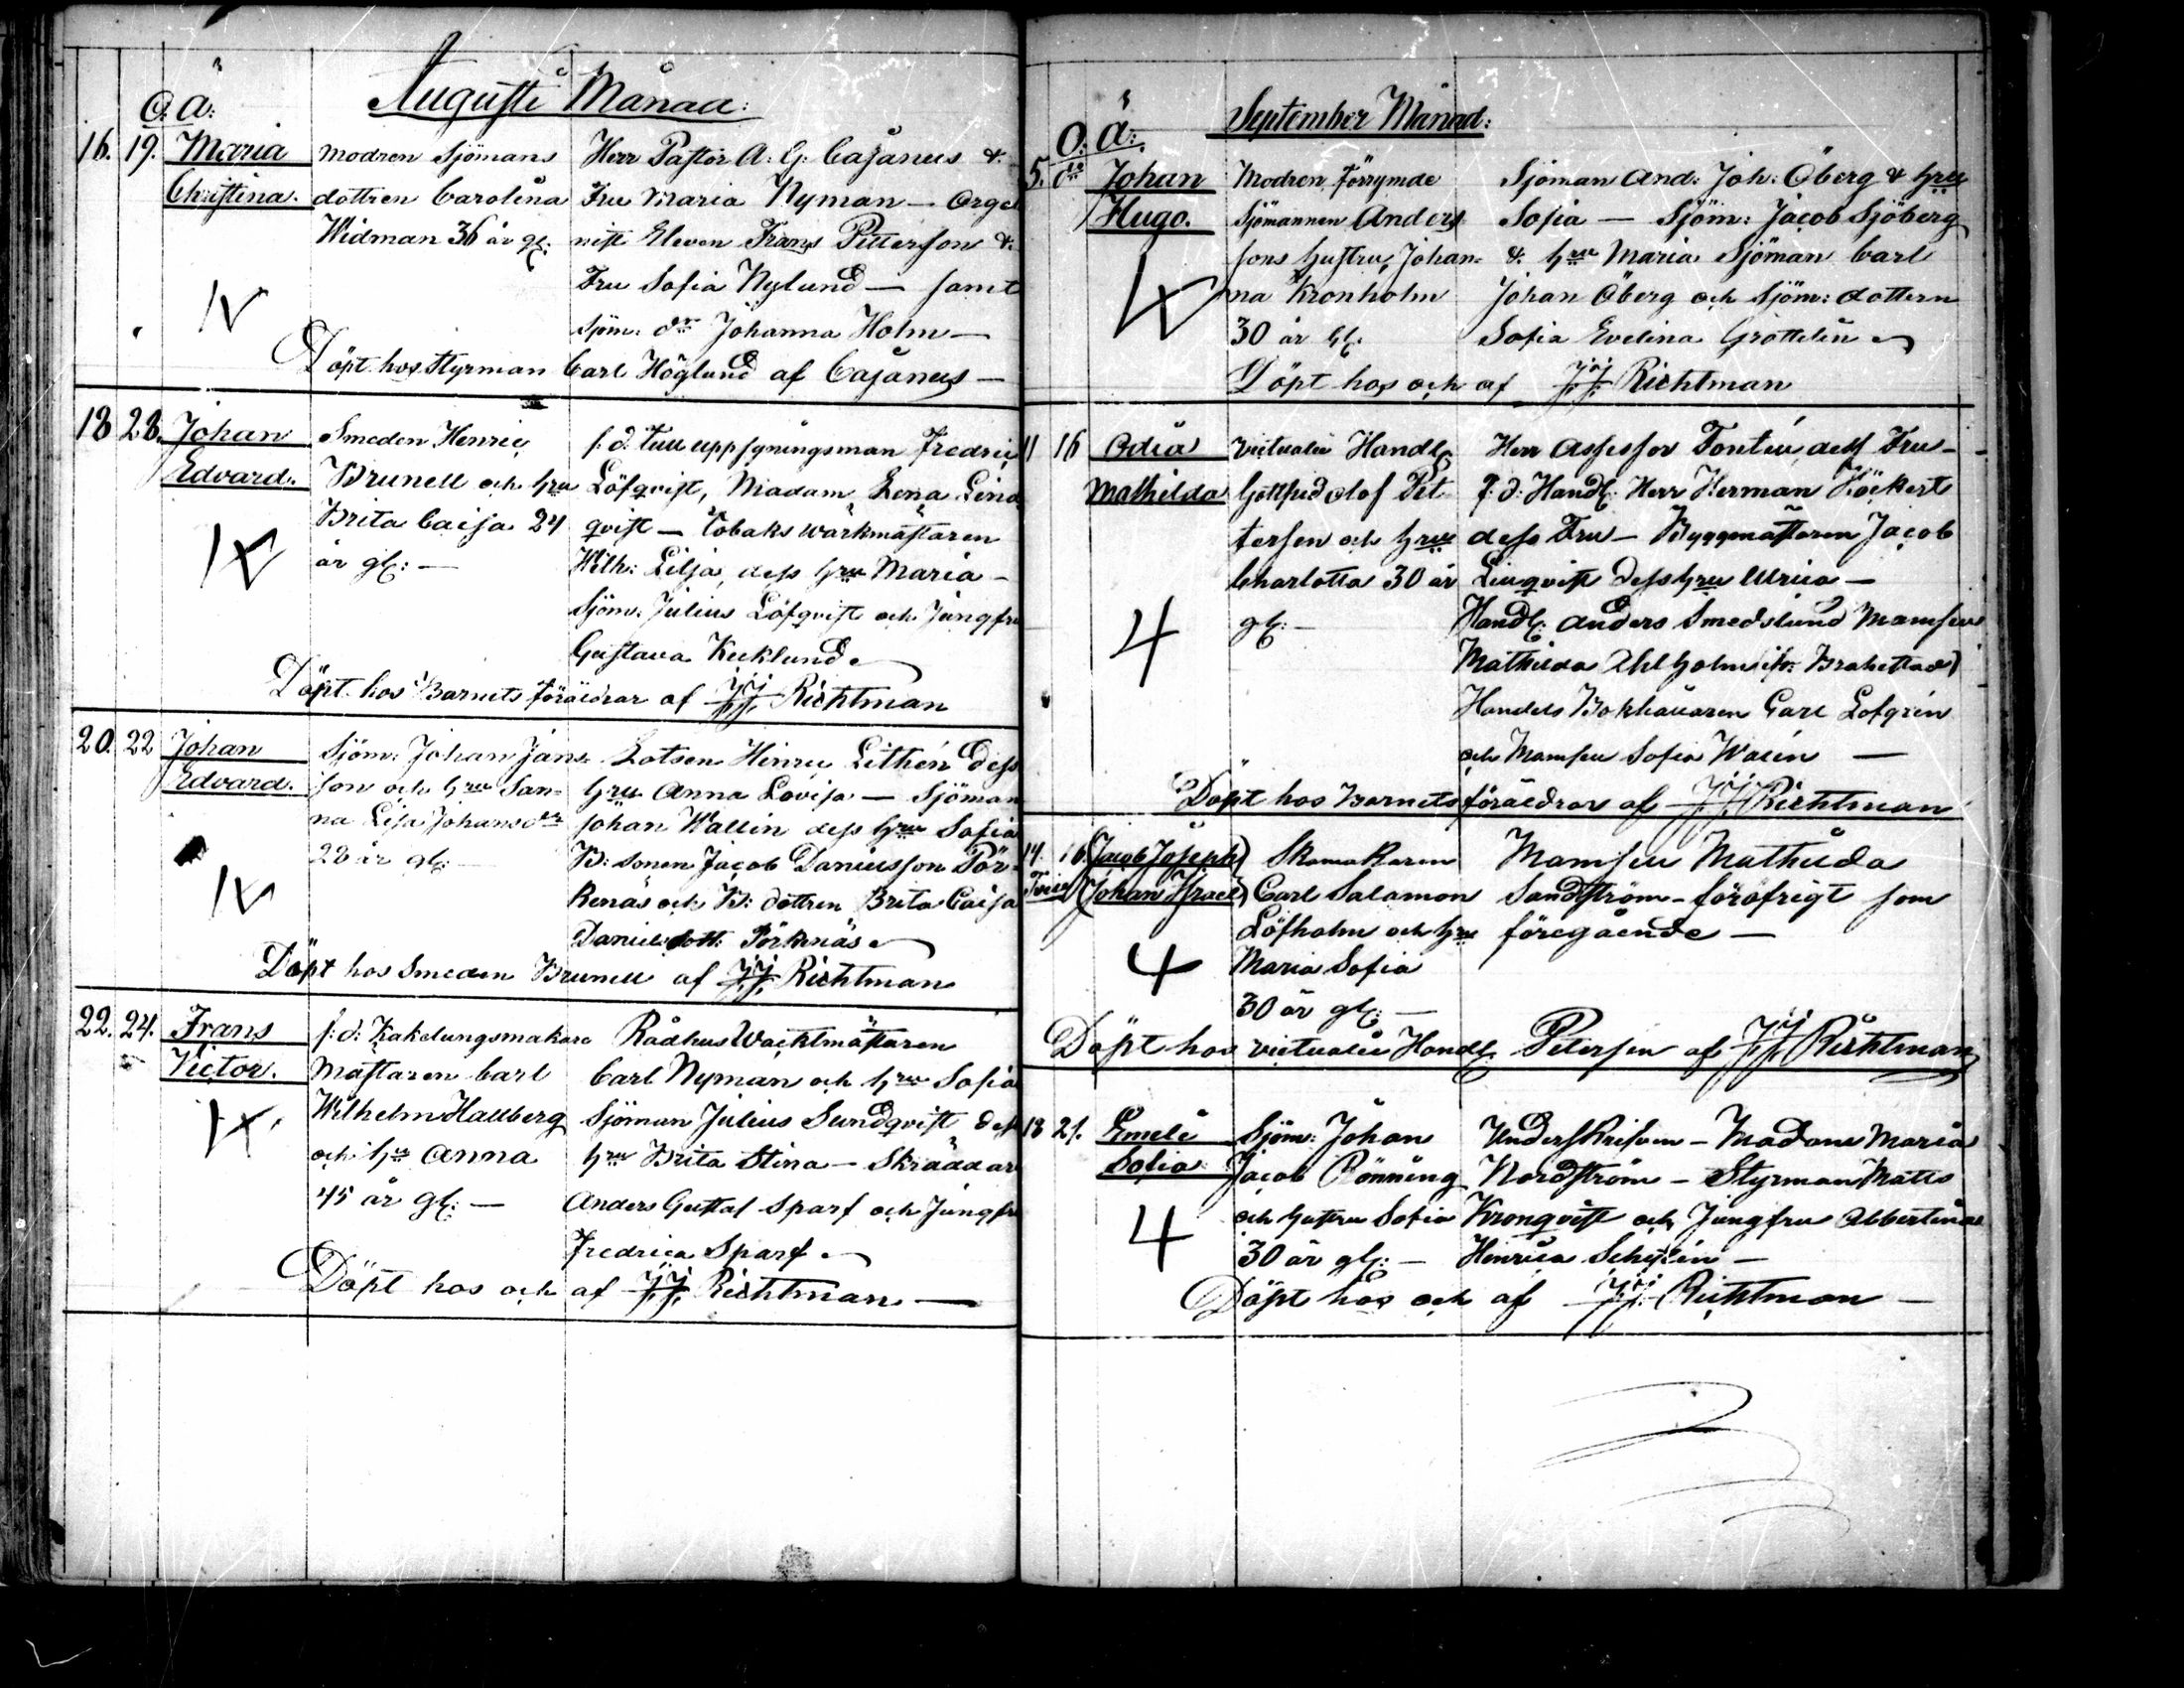 Augusti Månad:
O. a:
16. 19. Maria modren Sjömans Herr Pastor A: G: Cajanus &
Christina. dottren Carolina Fru Maria Nyman — Orga
Widman 36 år gl: nist Eleven Frans Petterson &
Fru Sofia Nylund — samt
Sjöm: dr Johanna Holm —
Döpt hos Styrman Carl Höglund af Cajanus —
18 28. Johan Smeden Henric f. d. Tull uppsyningsman Fredric
Edvard. Brunell och hru Löfqvist, Madam Lena Lind
Brita Caisa 24 qvist — Tobaks wärkmästaren
år gl: — Wilh: Lilja, dess hru Maria —
Sjöm: Julius Löfqvist och Jungfru
Gustava Kecklund
Döpt hos Barnets föräldrar af J. J. Richtman
20. 22 Johan Sjöm: Johan Jans Lotsen Hinric Lithén dess
Edvard. son och hru San- hru Anna Lovisa — Sjöman
na Lisa Johansdr Johan Wallin dess hru Sofia
28 år gl: — B: sonen Jacob Danielsson Pör-
kenäs och B: dottren Brita Caisa
Daniels dott: Pörkenäs
Döpt hos Smeden Brunell af J. J. Richtman
22. 24. Frans f: d: Kakelungsmakare Rådhus Wacktmästaren
Victor. Mästaren Carl Carl Nyman och hru Sofia
Wilhelm Hallberg Sjöman Julius Sundqvist dess
och hru Anna hru Brita Stina — Skräddare
45 år gl: — Anders Gustaf Sparf och Jungfru
Fredrica Sparf
Döpt hos och af J. J. Richtman —
September Månad:
O: a:
5. do Johan Modren, förrymde Sjöman And: Joh: Öberg & hru
Hugo. Sjömannen Anders Sofia — Sjöm: Jacob Sjöberg
sons hustru, Johan- & hru Maria Sjöman Carl
na Kronholm Johan Öberg och Sjöm: dottern
30 år gl: Sofia Evelina Gröttelin
Döpt hos och af J. J. Richtman
11 16 Adia Victualie Handl: Herr Assessor Fontin, dess Fru —
Mathilda Olof Pet f: d: Handl: Herr Herman Höckert
tersen och hru dess Fru — Byggmästaren Jacob
Charlotta 30 år Linqvist dess hru Ulrica —
gl: — Handl: Anders Smedslund Mamsell
Mathilda Ahlholm (fr: Brahestad)
Handels Bokhållaren Carl Löfgrén
och Mamsell Sofia Walén —
Döpt hos Barnets föräldrar af J. J. Richtman
14. 16. (Jacob Joseph) Skomakaren Mamsell Mathilda
(Johan Israel) Carl Salamon Sandström — föröfrigt som
Löfholm och hru föregående —
Maria Sofia
30 år gl: —
Döpt hos victualie Handl: Petersen af J. J. Richtman
18 21. Emele Sjöm: Johan Underskrifven — Madame Maria
Sofia Jacob Rönning Nordström — Styrman Matts
och hustru Sofia Kronqvist och Jungfru Albertina
30 år gl: — Henrica —
Döpt hos och af J. J. Richtman —